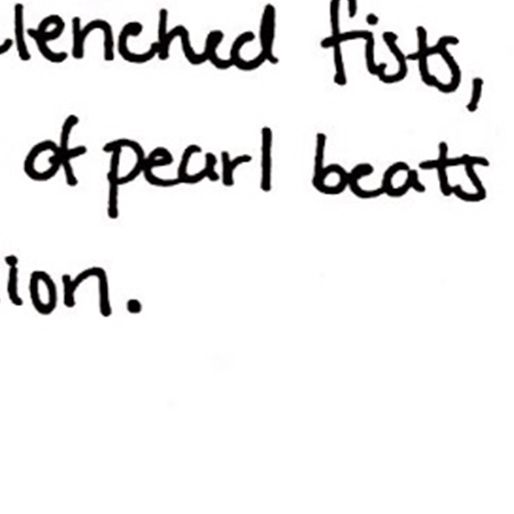 lenched fists,
of pearl beats
ion.